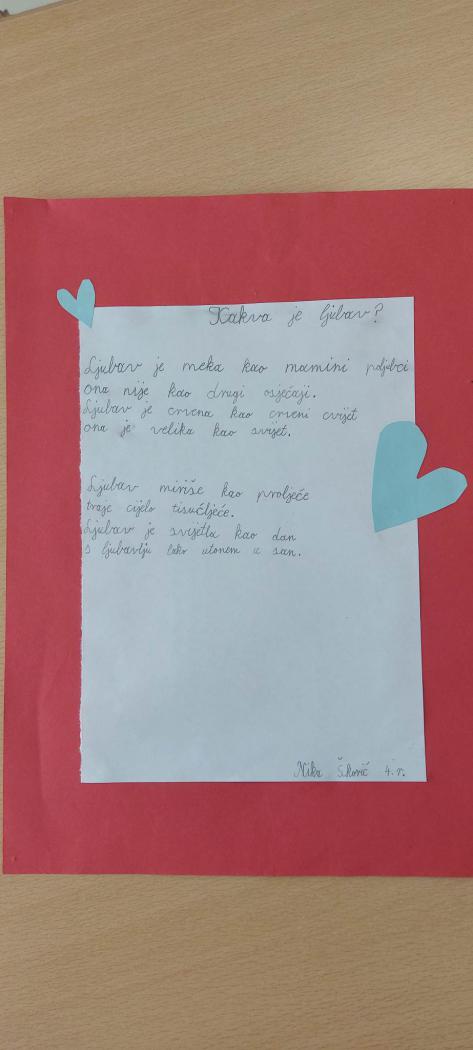 Kakva je ljubav?
Ljubav je meka kao mamini poljubci
ona nije kao drugi osjećaji.
Ljubav je crvena kao crveni cvijet
ona je velika kao svijet.
Ljubav miriše kao proljeće
traje cijelo tisućljeće.
Ljubav je svijetla kao dan
s ljubavlju lako utonem u san.
Nika 4. r.